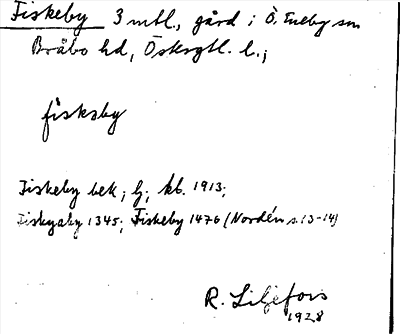 Fiskeby 3 mtl., gård i Ö. Eneby sn
Bråbo hd, Östergtl. l.;
fiskəby
Fiskeby bek; lj; kb. 1913;
Fiskyaby 1345; Fiskeby 1476 (Nordén s. 13-14)
R. Liljefors
1928